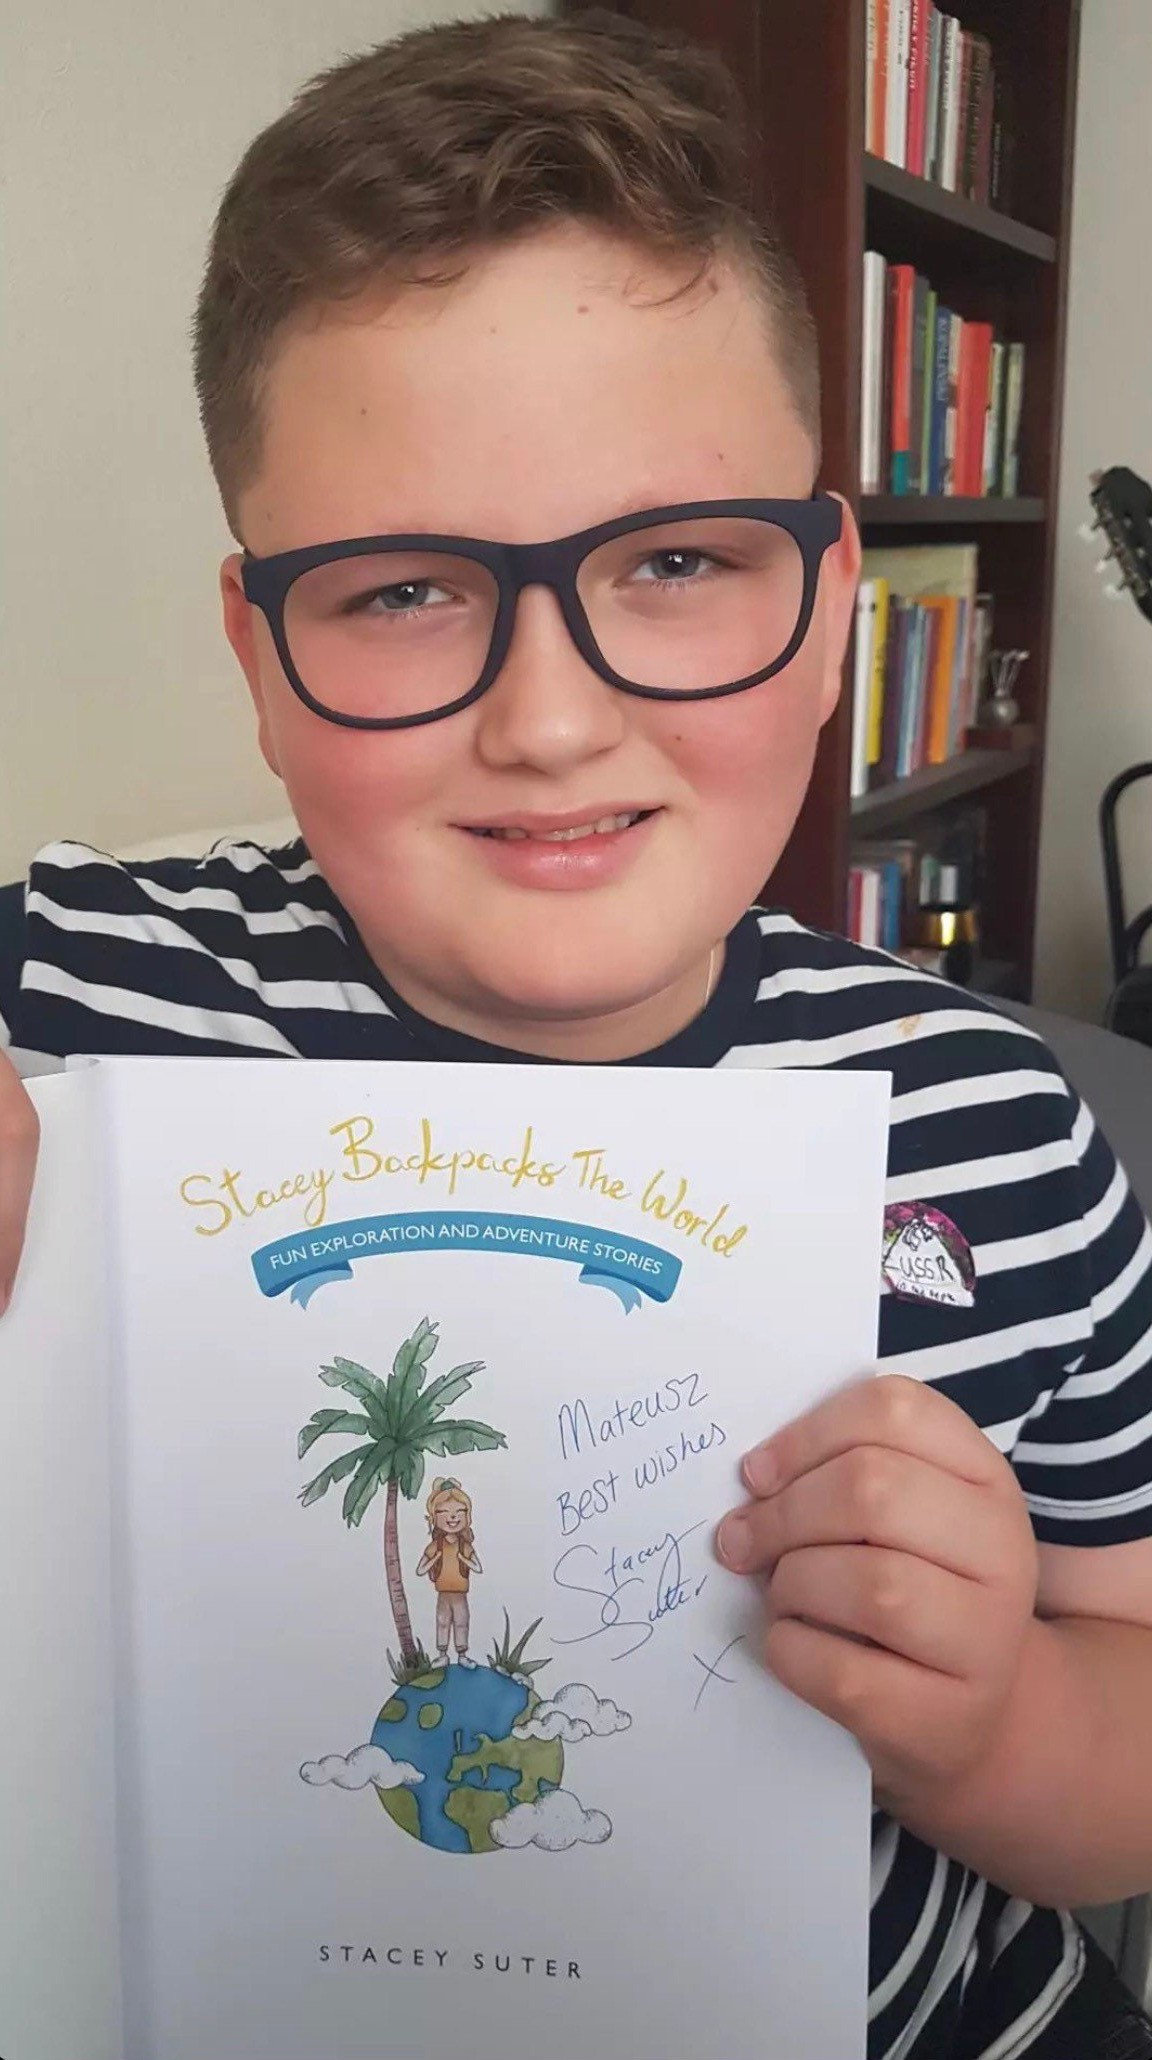 Stacey Backpacks The World
FUN EXPLORATION AND ADVENTURE STORIES
Mateusz
Best wishes
Stacey
Suter
X
STACEY SUTER